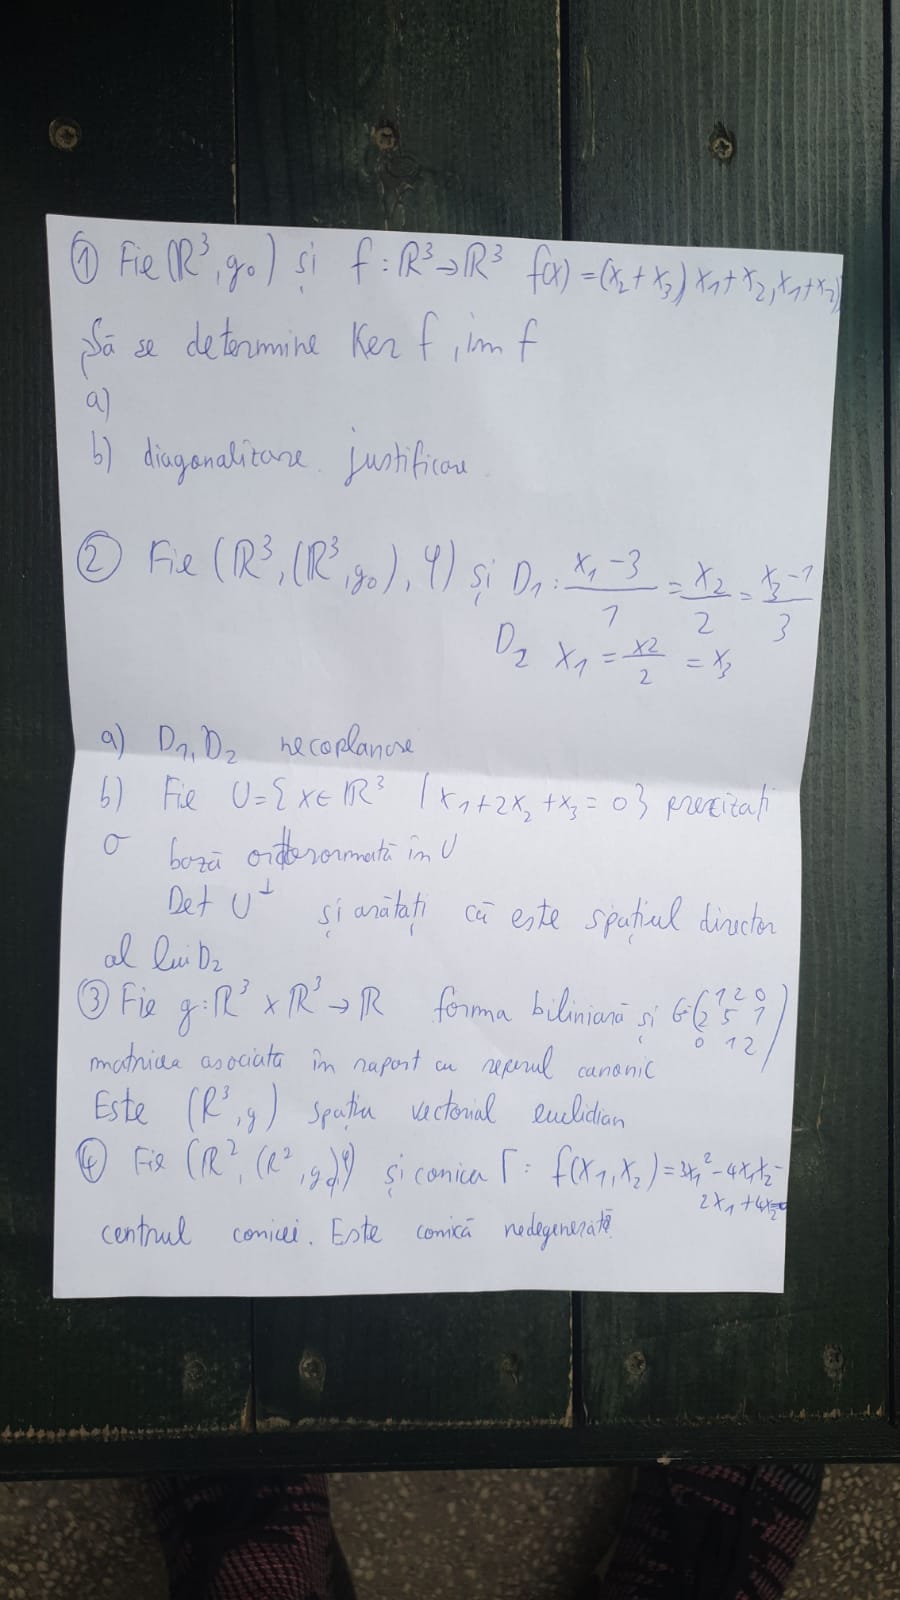 ① Fie (R³, g₀) și f: R³→R³ f(x) = (x₂+x₃, x₁+x₂, x₁+x₂)
Să se determine Ker f, im f
a)
b) diagonalizare. justificare
② Fie (R³, (R³, g₀), φ) și D₁: (x₁-3)/1 = x₂/2 = (x₃-1)/3
D₂ x₁ = x2/2 = x₃
a) D₁, D₂ necoplanare
b) Fie U={x∈ R³ / x₁+2x₂+x₃=0} precizati
o bază ortonormată în U
Det U⊥ și arătați că este spațiul director
al lui D₂
③ Fie g: R³ x R³ → R forma biliniară și G=(1 2 0
2 5 1
0 1 2)
matricea asociata în raport cu reperul canonic
Este (R³, g) spațiu vectorial euclidian
④ Fie (R², (R², g₀), φ) și conica Γ: f(x₁, x₂) = 3x₁²-4x₁x₂-
2x₁+4x₂
centrul conicei. Este conică nedegenerată